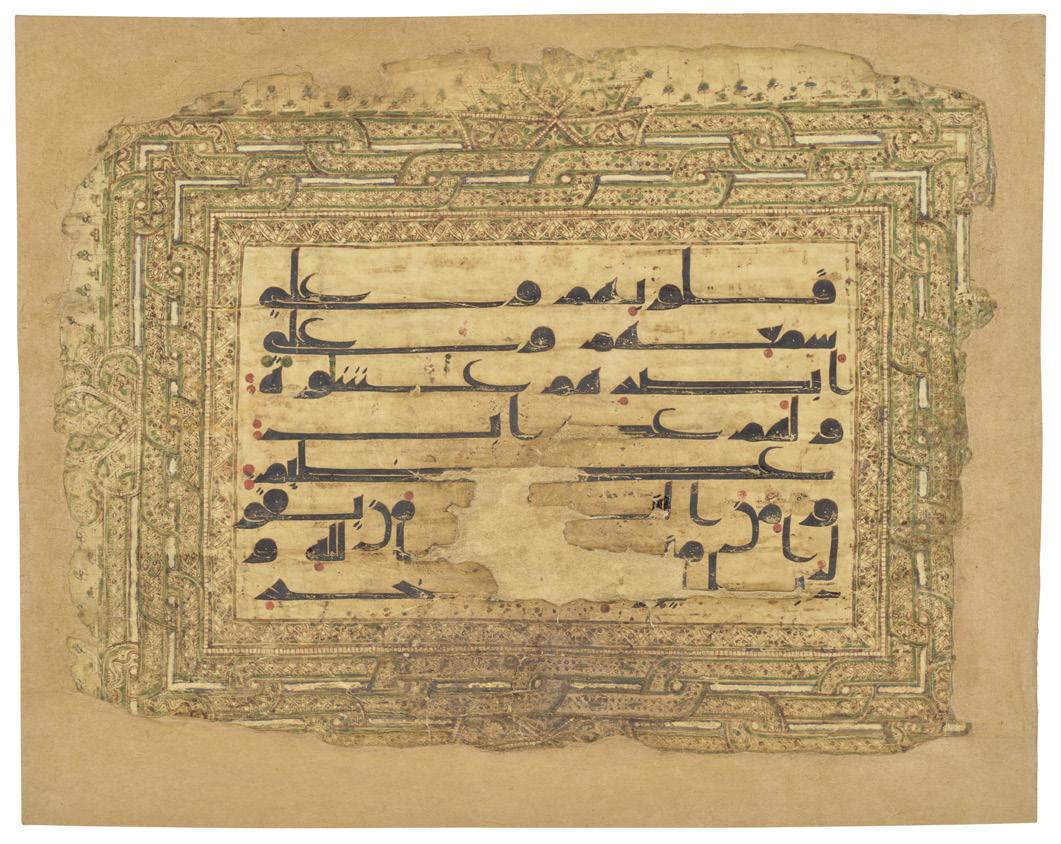 قلوبهم وعلى
سمعهم وعلى
ابصرهم غشوة
ولهم عذاب
عظيم
ومن من يقو
ل امنا بالله و